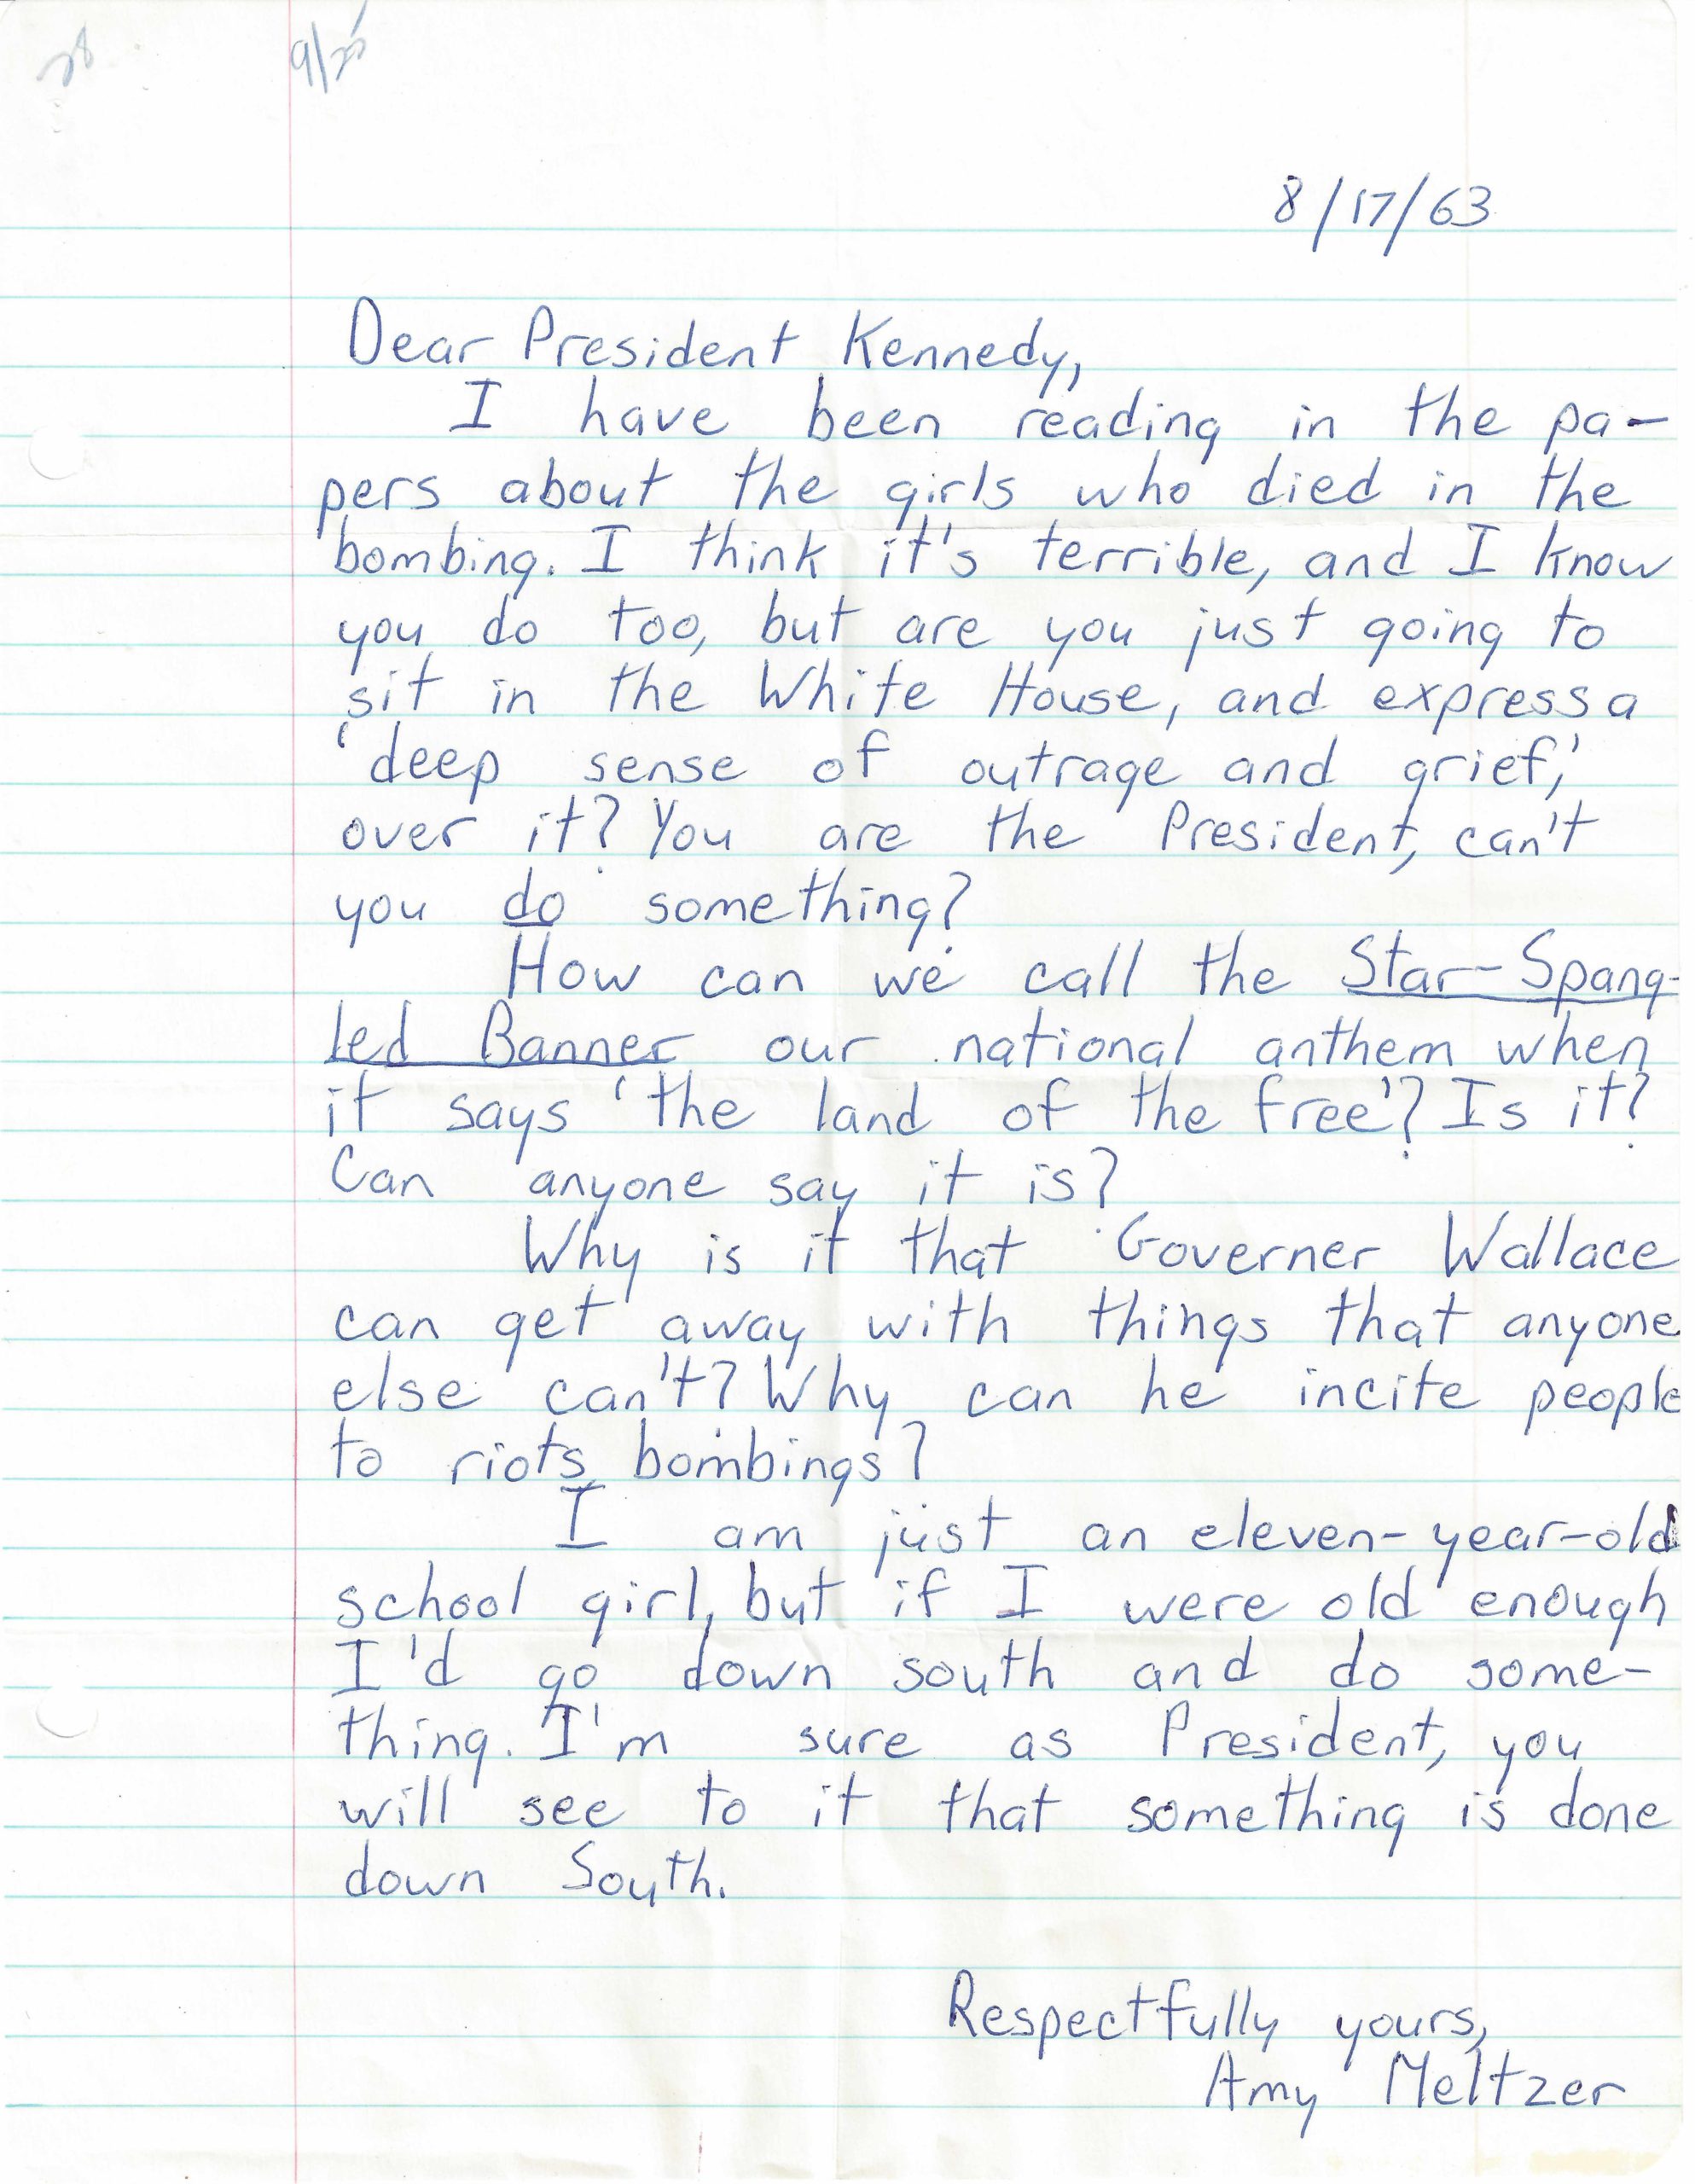 28 9/25
8/17/63
Dear President Kennedy,
I have been reading in the pa-
pers about the girls who died in the
bombing. I think it's terrible, and I know
you do too, but are you just going to
sit in the White House, and express a
'deep sense of outrage and grief,'
over it? You are the President, can't
you do something?
How can we call the Star-Spang-
led Banner our national anthem when
it says 'the land of the free'? Is it?
Can anyone say it is?
Why is it that Governer Wallace
can get away with things that anyone
else can't? Why can he incite people
to riots, bombings?
I am just an eleven-year-old
school girl, but if I were old enough
I'd go down south and do some-
thing. I'm sure as President, you
will see to it that something is done
down South.
Respectfully yours,
Amy Meltzer